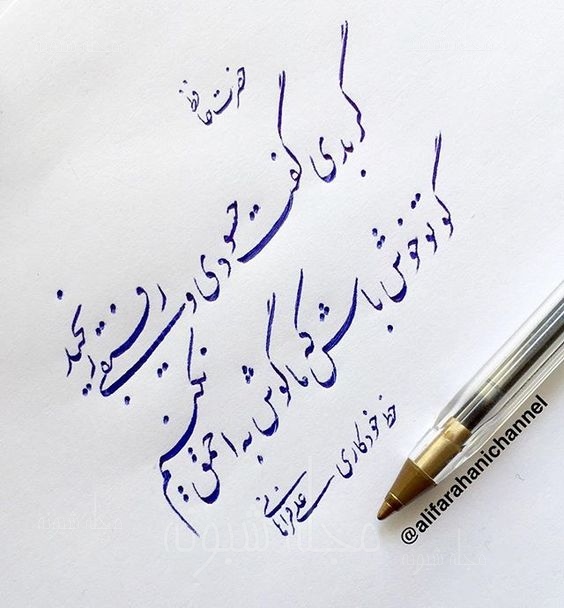 حضرت حافظ
گر بدی گفت حسودی و رفیقی رنجید
گو تو خوش باش که ما گوش به احمق نکنیم
خط خودکاری
علی فراهانی
@alifarahanichannel